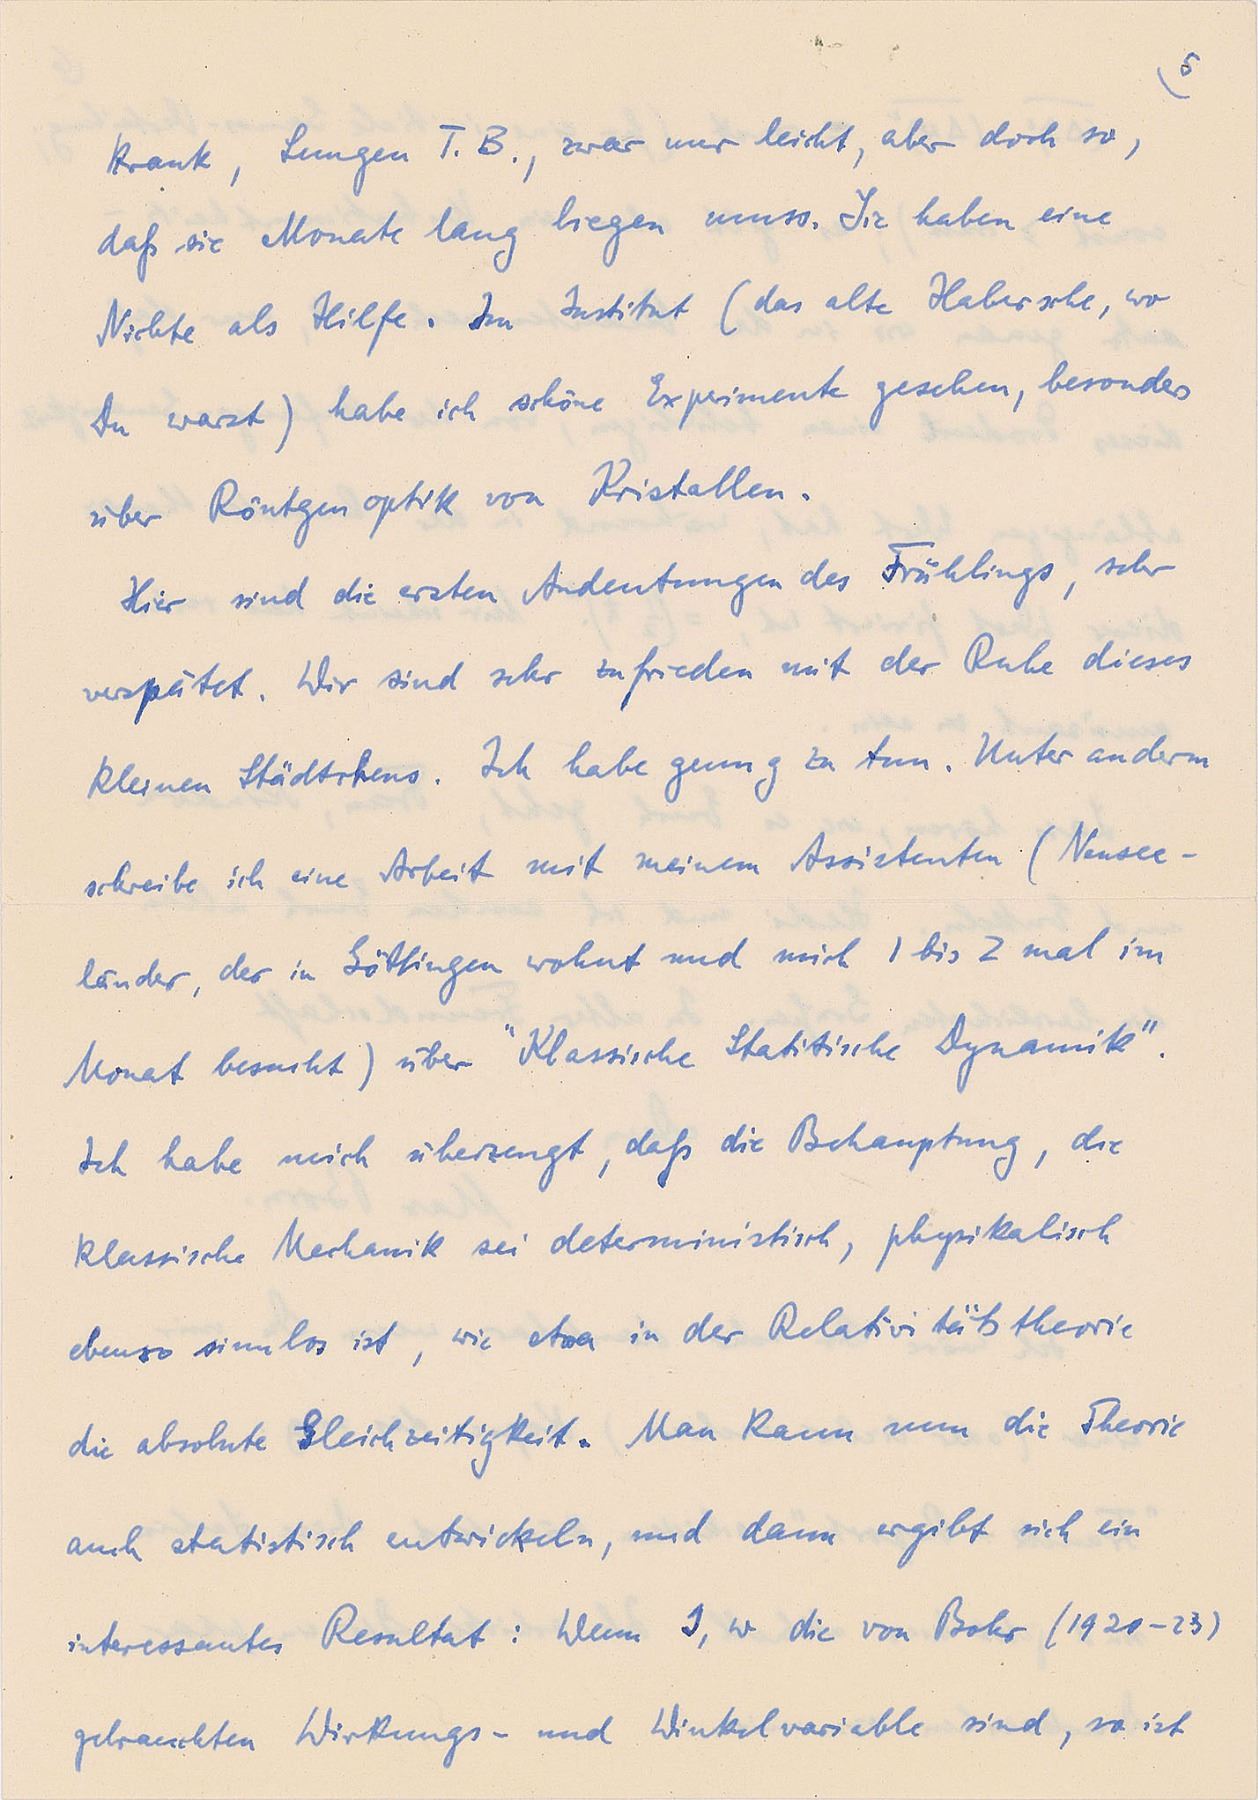 5
krank, Lungen T. B., zwar nur leicht, aber doch so,
daß sie Monate lang liegen muss. Sie haben eine
Nichte als Hilfe. Im Institut (das alte Habersche, wo
Du warst) habe ich schöne Experimente gesehen, besonders
über Röntgenoptik von Kristallen.
Hier sind die ersten Andeutungen des Frühlings, sehr
verspätet. Wir sind sehr zufrieden mit der Ruhe dieses
kleinen Städtchens. Ich habe genug zu tun. Unter anderm
schreibe ich eine Arbeit mit meinem Assistenten (Neusee-
länder, der in Göttingen wohnt und mich 1 bis 2 mal im
Monat besucht) über "Klassische Statitische Dynamik".
Ich habe mich überzeugt, daß die Behauptung, die
klassische Mechanik sei deterministisch, physikalisch
ebenso sinnlos ist, wie etwa in der Relativitätstheorie
die absolute Gleichzeitigkeit. Man kann nun die Theorie
auch statistisch entwickeln, und dann ergibt sich ein
interessantes Resultat: Wenn J, w die von Bohr (1920-23)
gebrauchten Wirkungs- und Winkelvariable sind, so ist